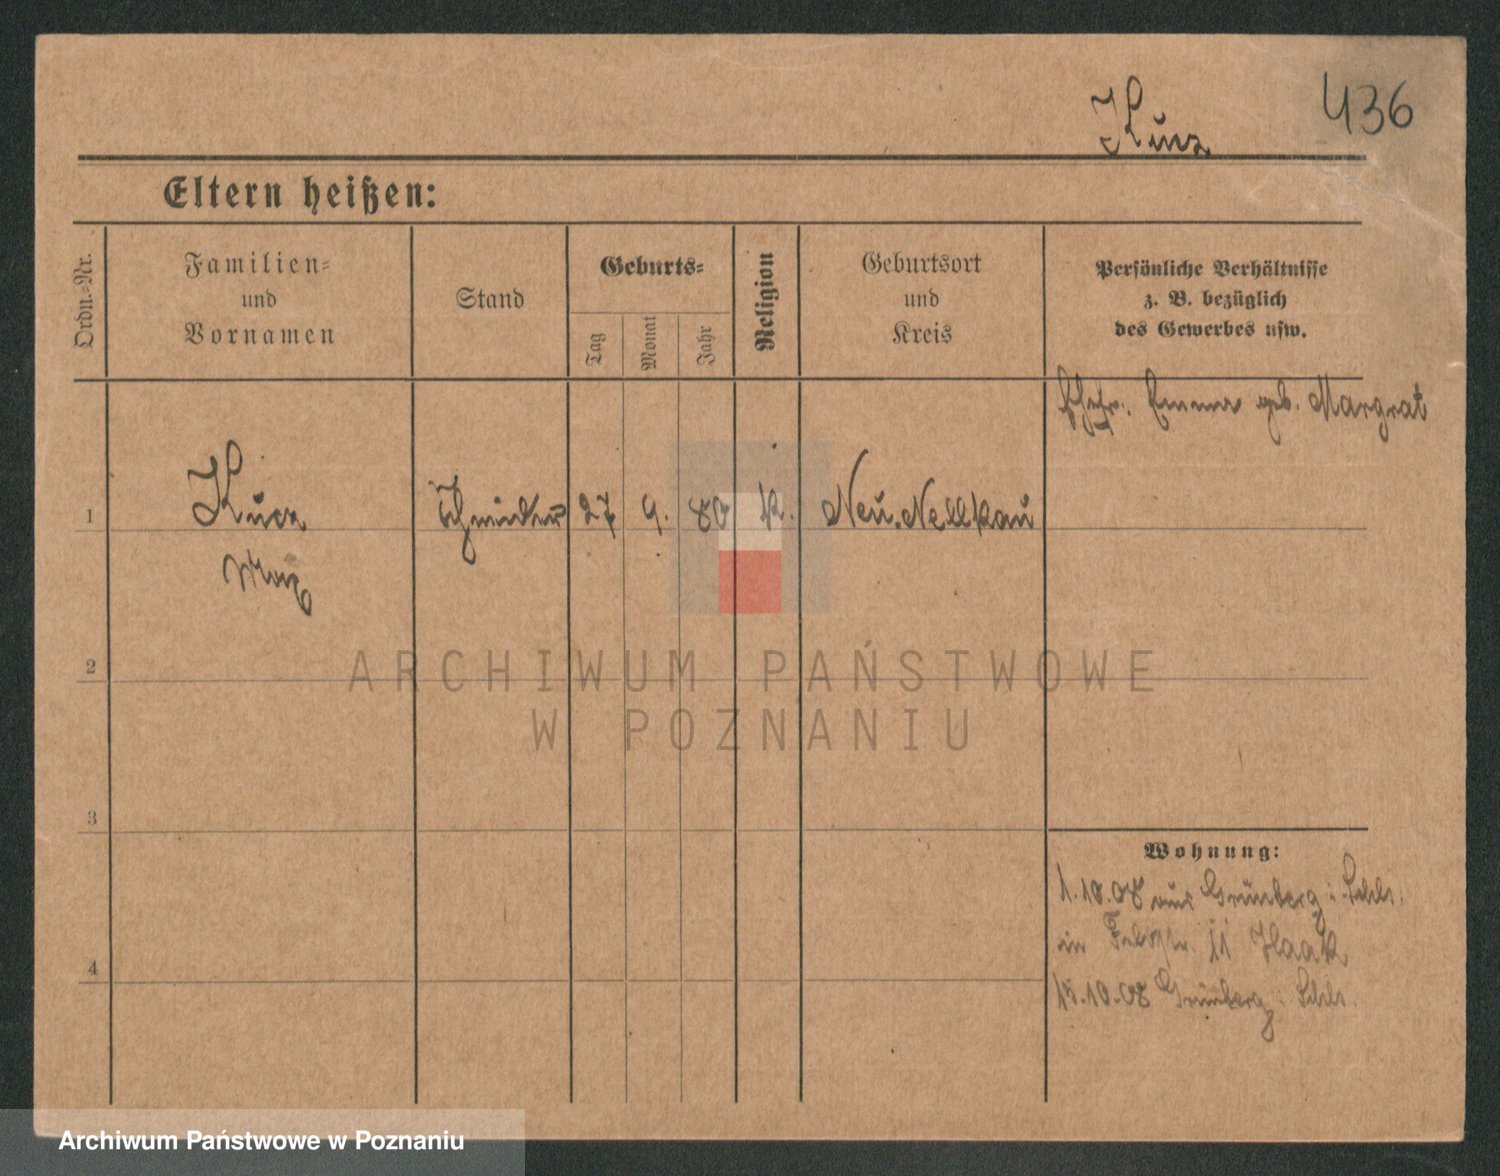 Kurz
436
Eltern heißen:
Ordn.-Nr.
Familien-
und
Vornamen
Stand
Geburts-
Tag
Monat
Jahr
Religion
Geburtsort
und
Kreis
Persönliche Verhältnisse
z. B. bezüglich
des Gewerbes usw.
Ehefr. Emma geb. Margrat
1
Kurz
Max
27
9.
80
k.
Neu Nellkau
2
3
4
Wohnung:
1.10.08 aus Grünberg i. Schles.
in 11 Haak
15.10.08 Grünberg i. Schles.
ARCHIWUM PAŃSTWOWE
W POZNANIU
Archiwum Państwowe w Poznaniu